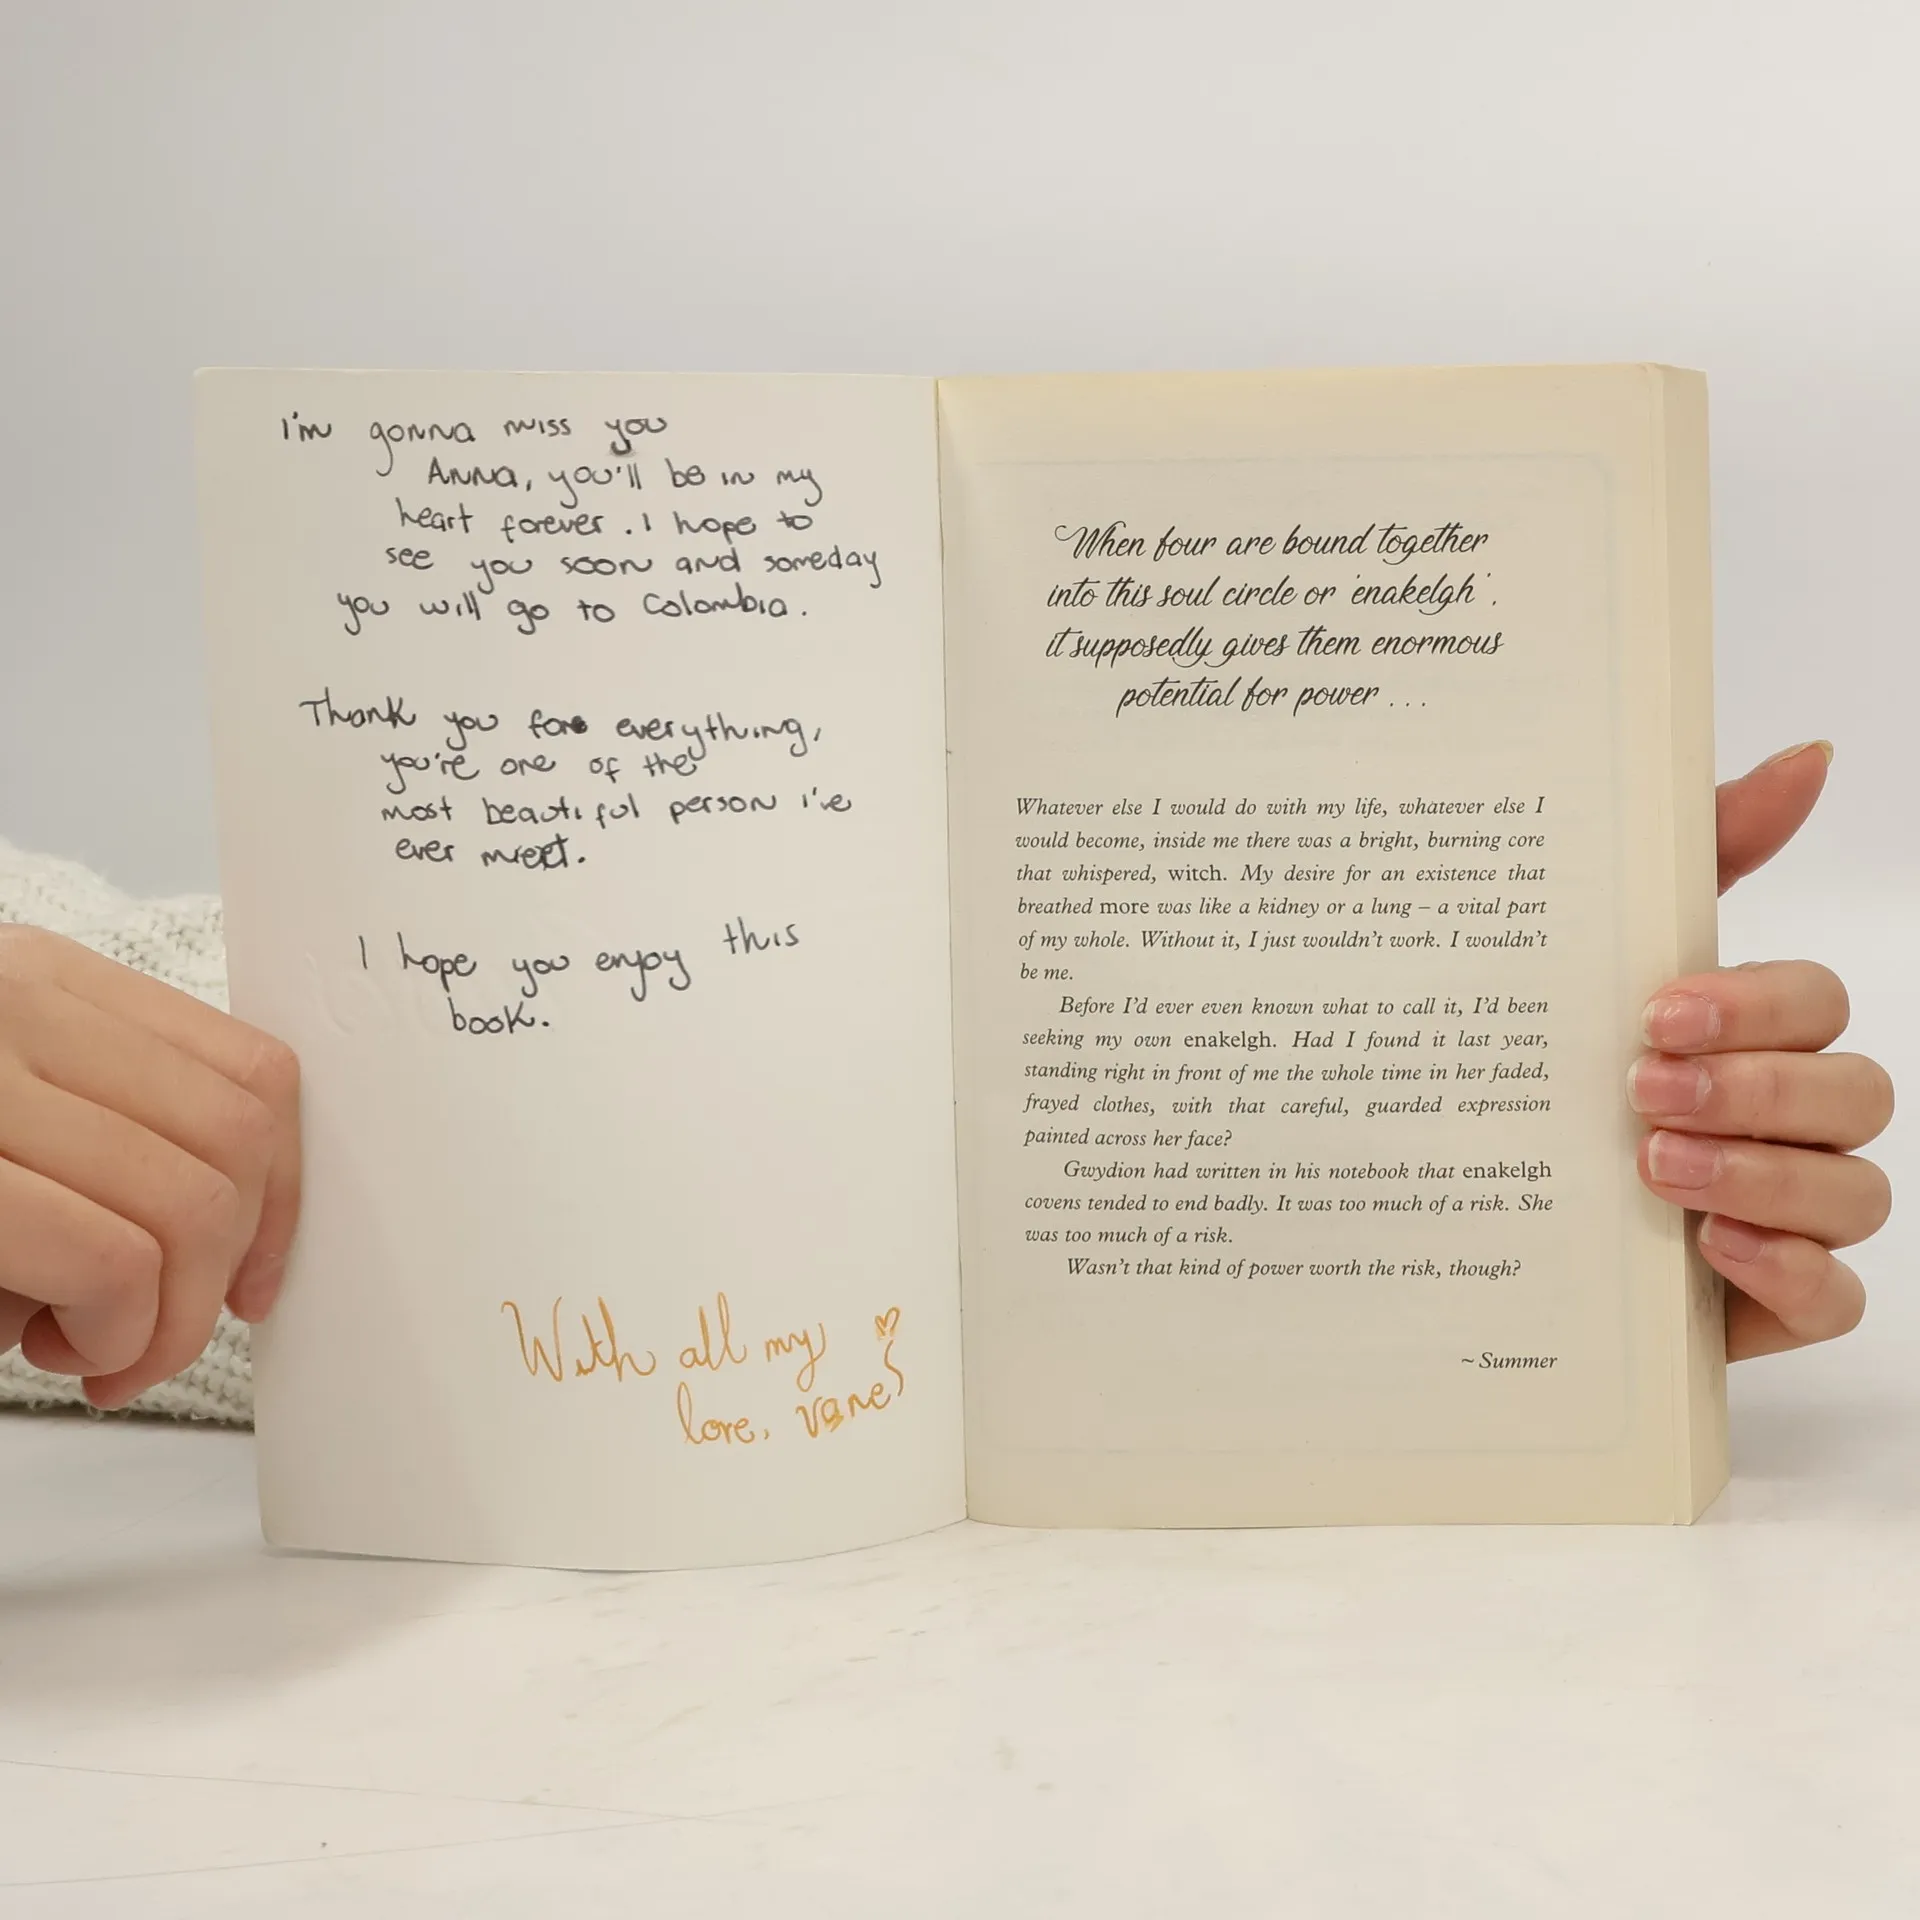 I'm gonna miss you
Anna, you'll be in my
heart forever. I hope to
see you soon and someday
you will go to Colombia.
Thank you for everything,
you're one of the
most beautiful person i've
ever meet.
I hope you enjoy this
book.
With all my
love, vane
When four are bound together
into this soul circle or 'enakelgh',
it supposedly gives them enormous
potential for power . . .
Whatever else I would do with my life, whatever else I
would become, inside me there was a bright, burning core
that whispered, witch. My desire for an existence that
breathed more was like a kidney or a lung – a vital part
of my whole. Without it, I just wouldn't work. I wouldn't
be me.
Before I'd ever even known what to call it, I'd been
seeking my own enakelgh. Had I found it last year,
standing right in front of me the whole time in her faded,
frayed clothes, with that careful, guarded expression
painted across her face?
Gwydion had written in his notebook that enakelgh
covens tended to end badly. It was too much of a risk. She
was too much of a risk.
Wasn't that kind of power worth the risk, though?
~ Summer